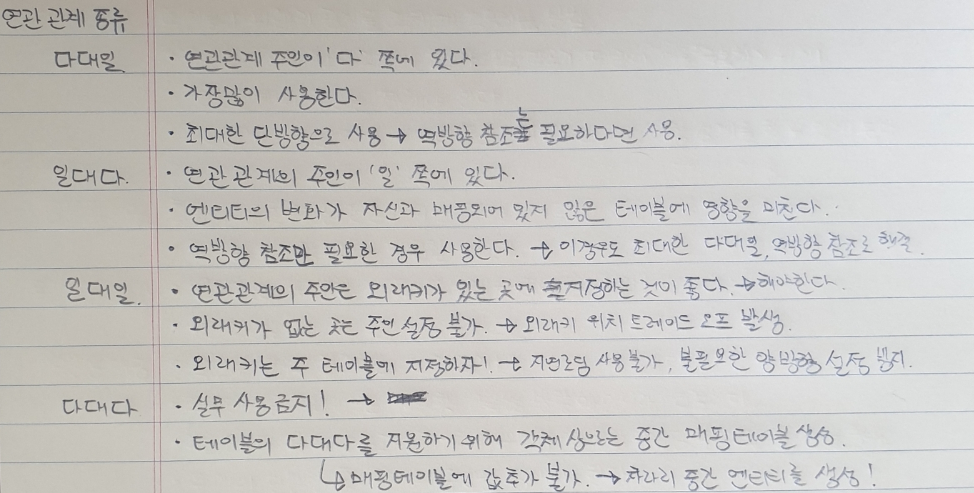 연관 관계 종류
다대일 · 연관관계 주인이 '다' 쪽에 있다.
· 가장많이 사용한다.
· 최대한 단방향으로 사용 → 역방향 참조는 필요하다면 사용.
일대다. · 연관 관계의 주인이 '일' 쪽에 있다.
· 엔티티의 변화가 자신과 매핑되어 있지 않은 테이블에 영향을 미친다.
· 역방향 참조만 필요한 경우 사용한다. → 이경우도 최대한 다대일, 역방향 참조로 해결.
일대일. · 연관관계의 주인은 외래키가 있는 곳에 지정하는 것이 좋다. → 해야한다.
· 외래키가 없는 곳은 주인 설정 불가. → 외래키 위치 트레이드 오프 발생.
· 외래키는 주 테이블에 지정하자! → 지연로딩 사용불가, 불필요한 양방향 설정 방지.
다대다 · 실무 사용금지! →
· 테이블의 다대다를 지원하기 위해 객체상으로는 중간 매핑테이블 생성.
↳ 매핑테이블에 값추가 불가. → 차라리 중간 엔티티를 생성!